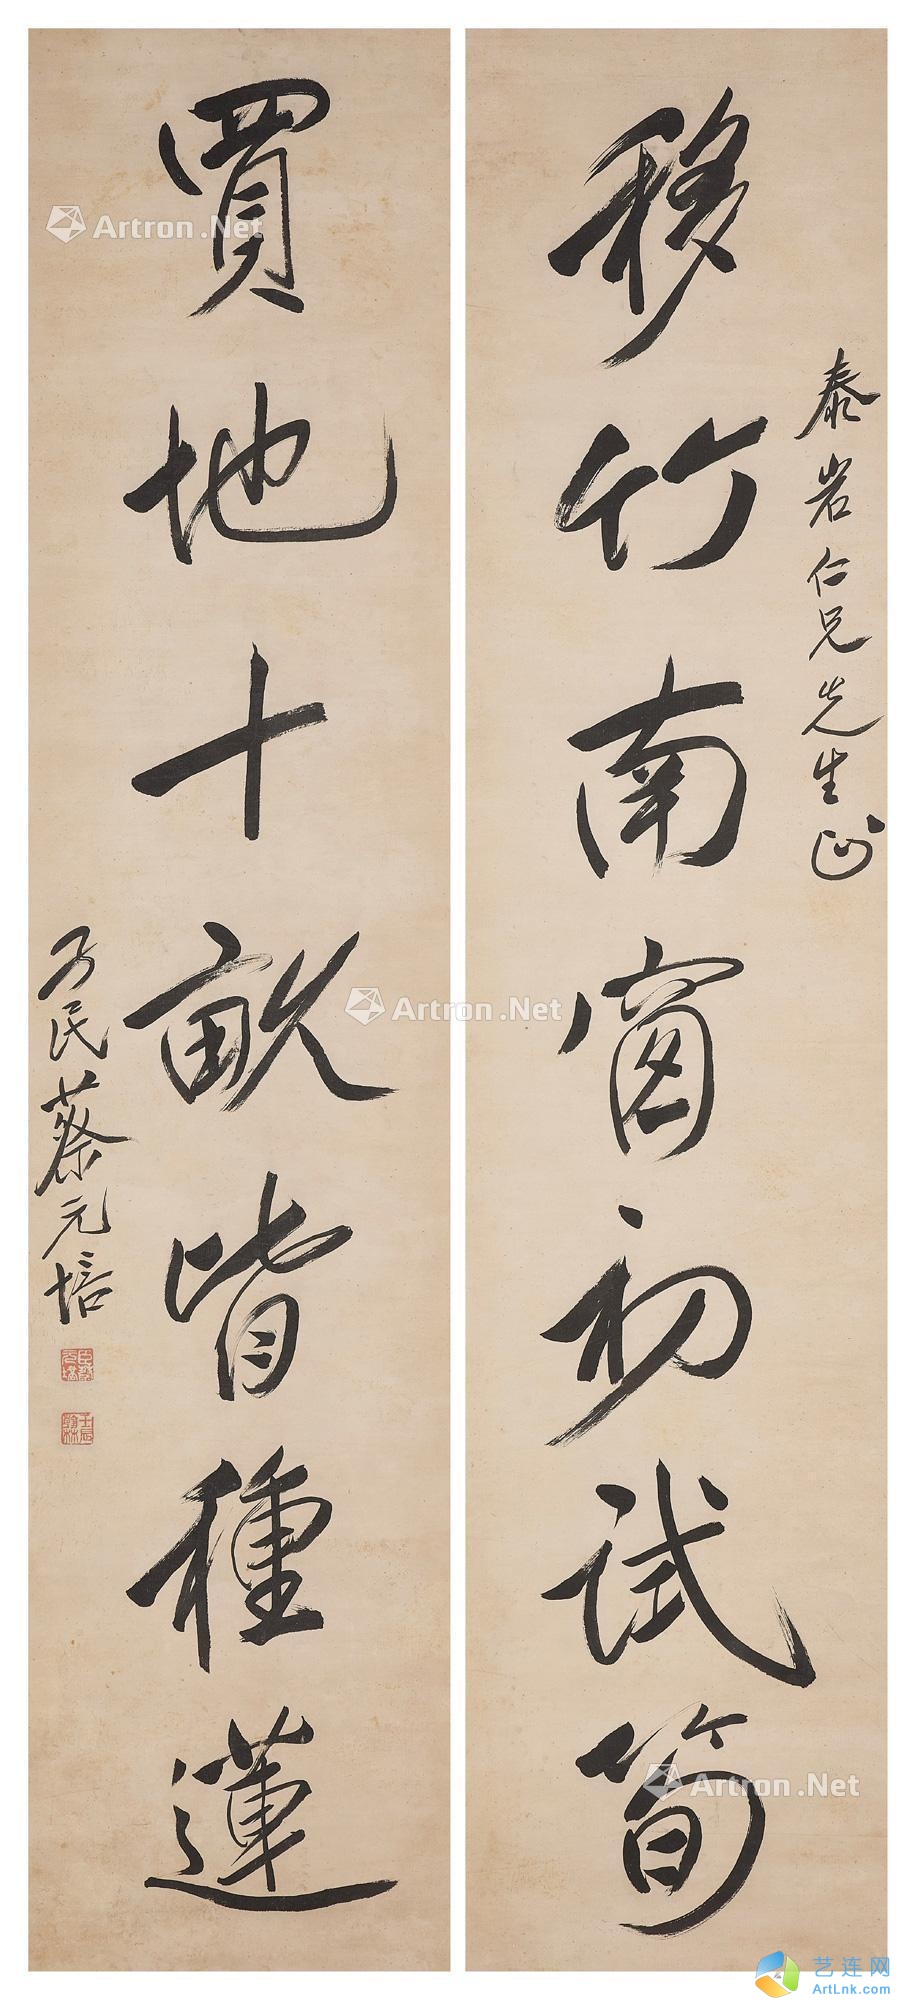 泰岩仁兄先生正
移竹南窗初試筍
買地十畝皆種蓮
孑民蔡元培
臣蔡元培
壬辰翰林
Artron.Net
Artron.Net
Artron.Net
艺连网
ArtLnk.com